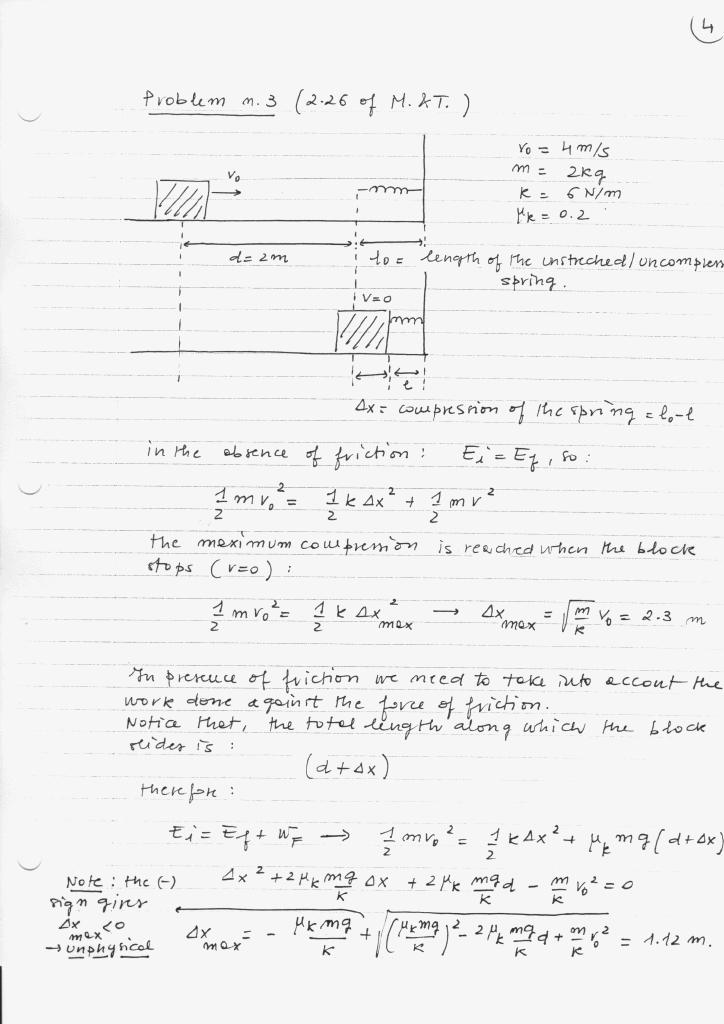 4
Problem n. 3 (2.26 of M. & T.)
v₀ = 4 m/s
m = 2kg
k = 6 N/m
μk = 0.2
v₀
d = 2m
l₀ = length of the unstreched/uncompress
spring.
v=0
l
Δx = compression of the spring = l₀-l
in the absence of friction : Ei = Ef , so :
1/2 m v₀² = 1/2 k Δx² + 1/2 m v²
the maximum compression is reached when the block
stops (v=0) :
1/2 m v₀² = 1/2 k Δx²max → Δxmax = √(m/k) v₀ = 2.3 m
In presence of friction we need to take into accout the
work done against the force of friction.
Notice that, the total length along which the block
slides is :
(d+Δx)
therefore :
Ei = Ef + WF → 1/2 m v₀² = 1/2 k Δx² + μk m g (d+Δx)
Δx² + 2 μk mg/k Δx + 2 μk mg/k d - m/k v₀² = 0
Note : the (-)
sign gives
Δxmax <0
→ unphysical
Δxmax = - μk mg/k + √((μk mg/k)² - 2 μk mg/k d + m/k v₀²) = 1.12 m.